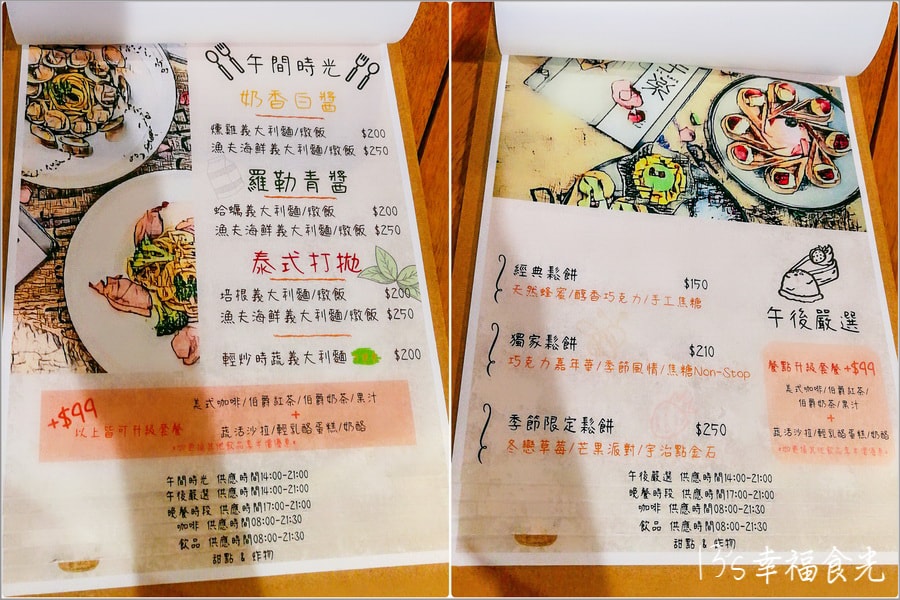 午間時光
奶香白醬
燻雞義大利麵/燉飯 $200
漁夫海鮮義大利麵/燉飯 $250
羅勒青醬
蛤蠣義大利麵/燉飯 $200
漁夫海鮮義大利麵/燉飯 $250
泰式打拋
培根義大利麵/燉飯 $200
漁夫海鮮義大利麵/燉飯 $250
輕炒時蔬義大利麵 $200
+$99
以上皆可升級套餐
美式咖啡/伯爵紅茶/伯爵奶茶/果汁
+
蔬活沙拉/輕乳酪蛋糕/奶酪
午間時光 供應時間14:00-21:00
午後嚴選 供應時間14:00-21:00
晚餐時段 供應時間17:00-21:00
咖啡 供應時間08:00-21:30
飲品 供應時間08:00-21:30
甜點 & 炸物
經典鬆餅 $150
天然蜂蜜/醇香巧克力/手工焦糖
獨家鬆餅 $210
巧克力嘉年華/季節風情/焦糖Non-Stop
季節限定鬆餅 $250
冬戀草莓/芒果派對/宇治點金石
午後嚴選
餐點升級套餐 +$99
美式咖啡/伯爵紅茶/
伯爵奶茶/果汁
+
蔬活沙拉/輕乳酪蛋糕/奶酪
午後嚴選 供應時間14:00-21:00
晚餐時段 供應時間17:00-21:00
咖啡 供應時間08:00-21:30
飲品 供應時間08:00-21:30
甜點 & 炸物
135幸福食光